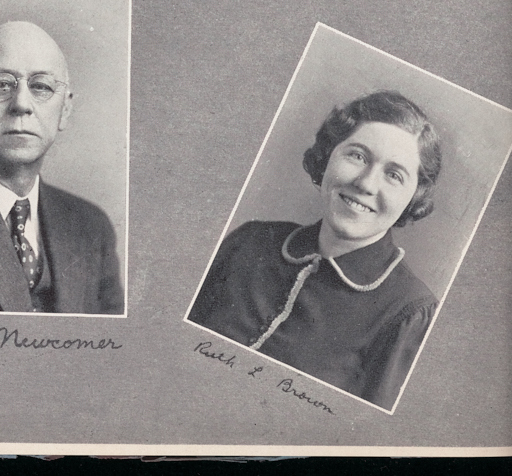 Newcomer
Ruth L Brown